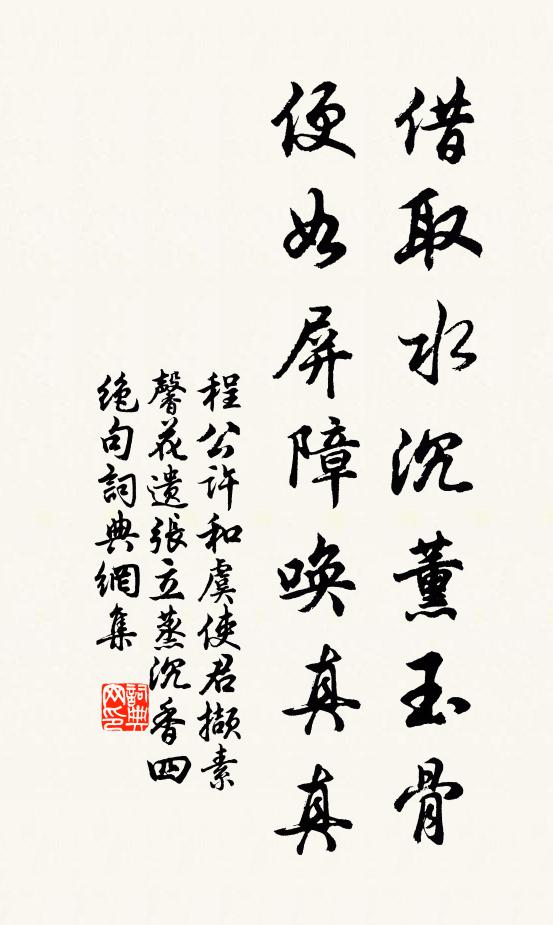 借取水沉薰玉骨
便如屏障喚真真
程公許和虞使君擷素
馨花遺張立蒸沉香四
絶句詞典網集
詞典
网印